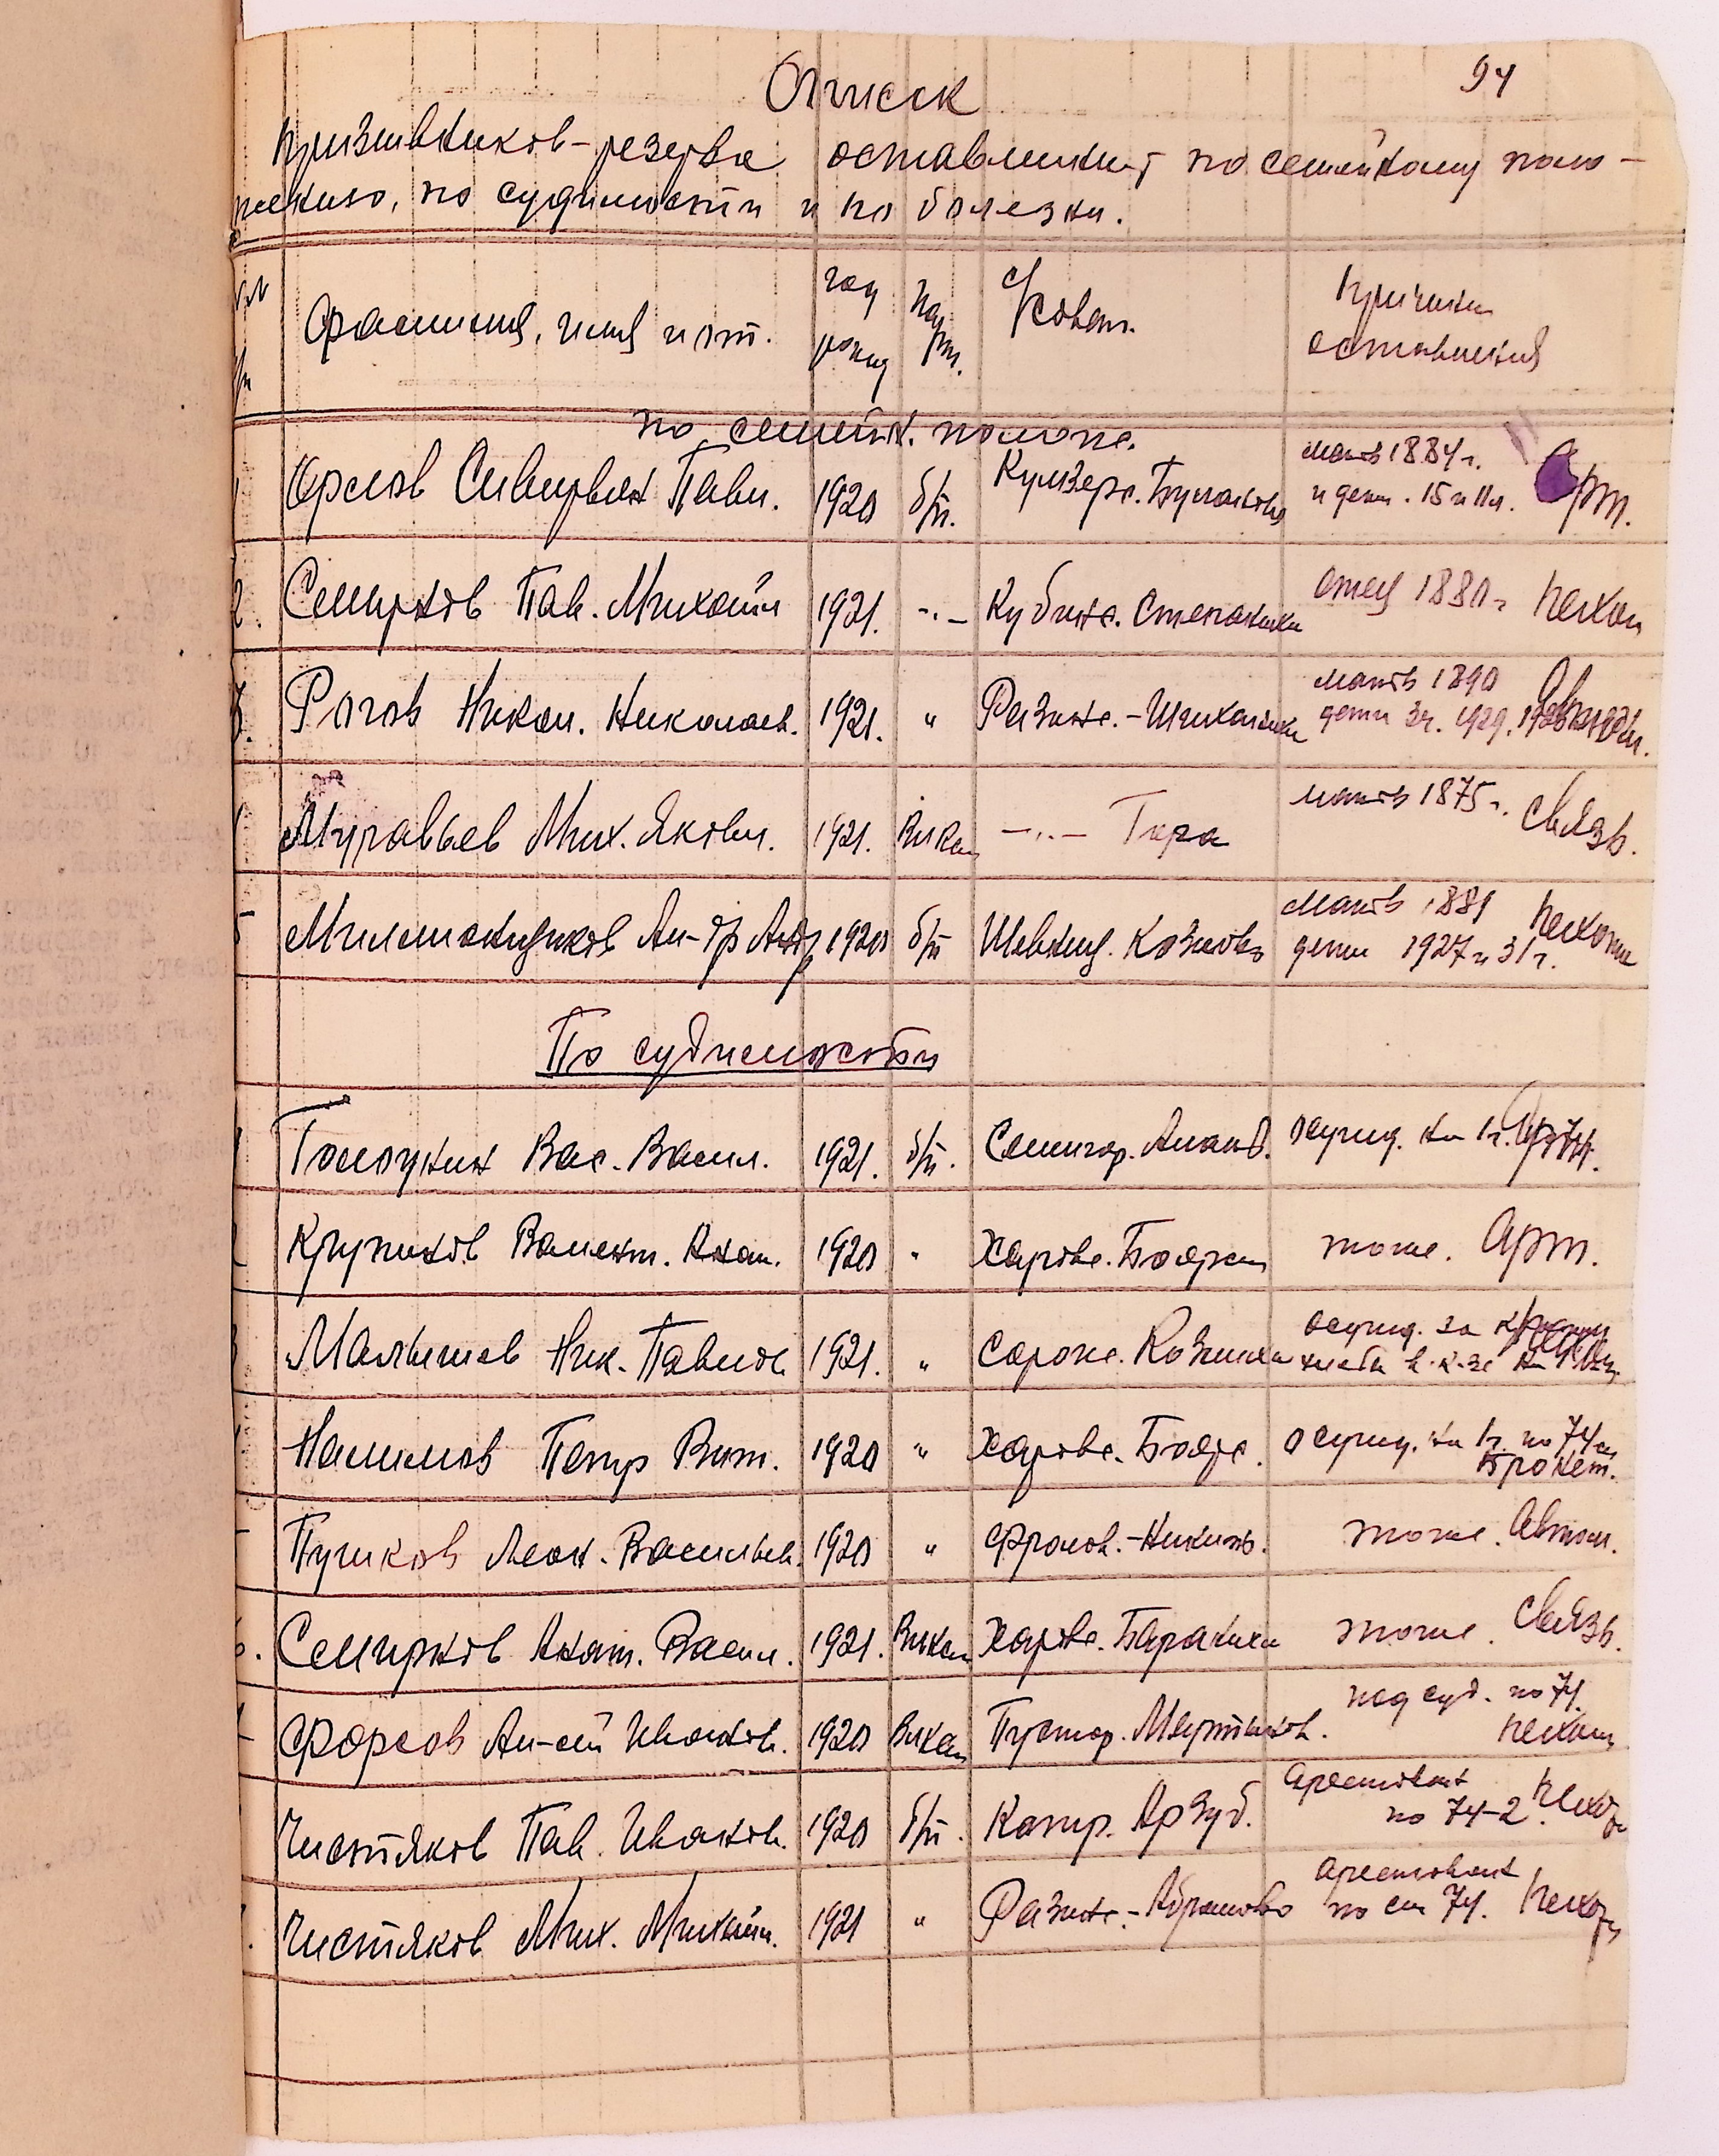 94
Список
призывников-резерва оставленных по семейному поло-
жению, по судимости и по болезни.
№№ п/п Фамилия, имя и от. год рожд парт. С/совет. Причина оставления
по семейн. полож.
1 Орлов Северьян Павл. 1920 б/п. Кумзерс. мать 1884 г. и дети 15 и 11 л. Арт.
2. Смирнов Пав. Михайл 1921. -"- Кубинс. Степаниха отец 1880 г пехот
3. Рогов Никол. Николаев. 1921. " Разинс.-Шиханиха мать 1890 дети 3ч. 1929.
Муравьев Мих. Яковл. 1921. Влксм -"- Гора мать 1875 г. Связь.
5 Ал-др Андр 1920 б/п Шевниц. Козлово мать 1881 дети 1927 и 31 г. пехота
По судимости
1 Голоднин Вас. Васил. 1921. б/п. Семигор. осужд. на 1 г.
2 Крупнов Валент. Анат. 1920 " Харовс. Боярск тоже. Арт.
3 Малышев Ник. Павлов 1921. " осужд. за хлеба в к-зе на
Налимов Петр Вит. 1920 " Харовс. Боярс. осужд. на 1 г. по 74 ст
Пушков Леон. Васильев. 1920 " Фролов.-Никит. тоже. Автом.
6. Смирнов Анат. Васил. 1921. Влксм Харовс. Бараниха тоже. Связь.
Форсов Ал-ей Иванов. 1920 Влксм Пустор. Мартынов. под суд. по 74. пехота
Чистяков Пав. Иванов. 1920 б/п. Катр. Арзуб. Арестован по 74-2. Пехота
Чистяков Мих. Михайл. 1921 " Разинс.-Абрамово Арестован по ст 74. Пехота